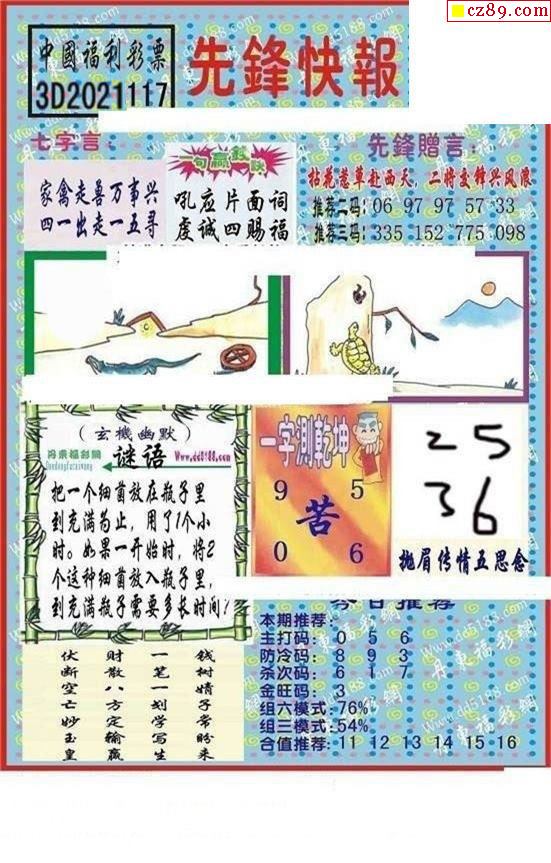 cz89.com
中國福利彩票
3D2021117
先鋒快報
七字言：
家禽走喜万事兴
四一出走一五寻
一句赢钱诀
吼应片面词
虔诚四赐福
先鋒贈言：
拈花惹草赴西天，二将交锋兴风浪
推荐二码：06 97 97 57 33
推荐三码：335 152 775 098
（玄機幽默）
丹東福彩網
Dandongfucaiwang
谜语
Www.dd5188.com
把一个细菌放在瓶子里
到充满为止，用了1个小
时。如果一开始时，将2
个这种细菌放入瓶子里，
到充满瓶子需要多长时间?
一字測乾坤
9 5
苦
0 6
25
36
抛眉传情五思念
伏 财 一 钱
断 散 笔 树
空 八 一 婧
亡 方 划 子
妙 定 学 常
玉 输 写 盼
皇 赢 生 来
今日推荐
本期推荐：
主打码：0 5 6
防冷码：8 9 3
杀次码：6 1 7
金旺码：3
组六模式：76%
组三模式：54%
合值推荐：11 12 13 14 15 16